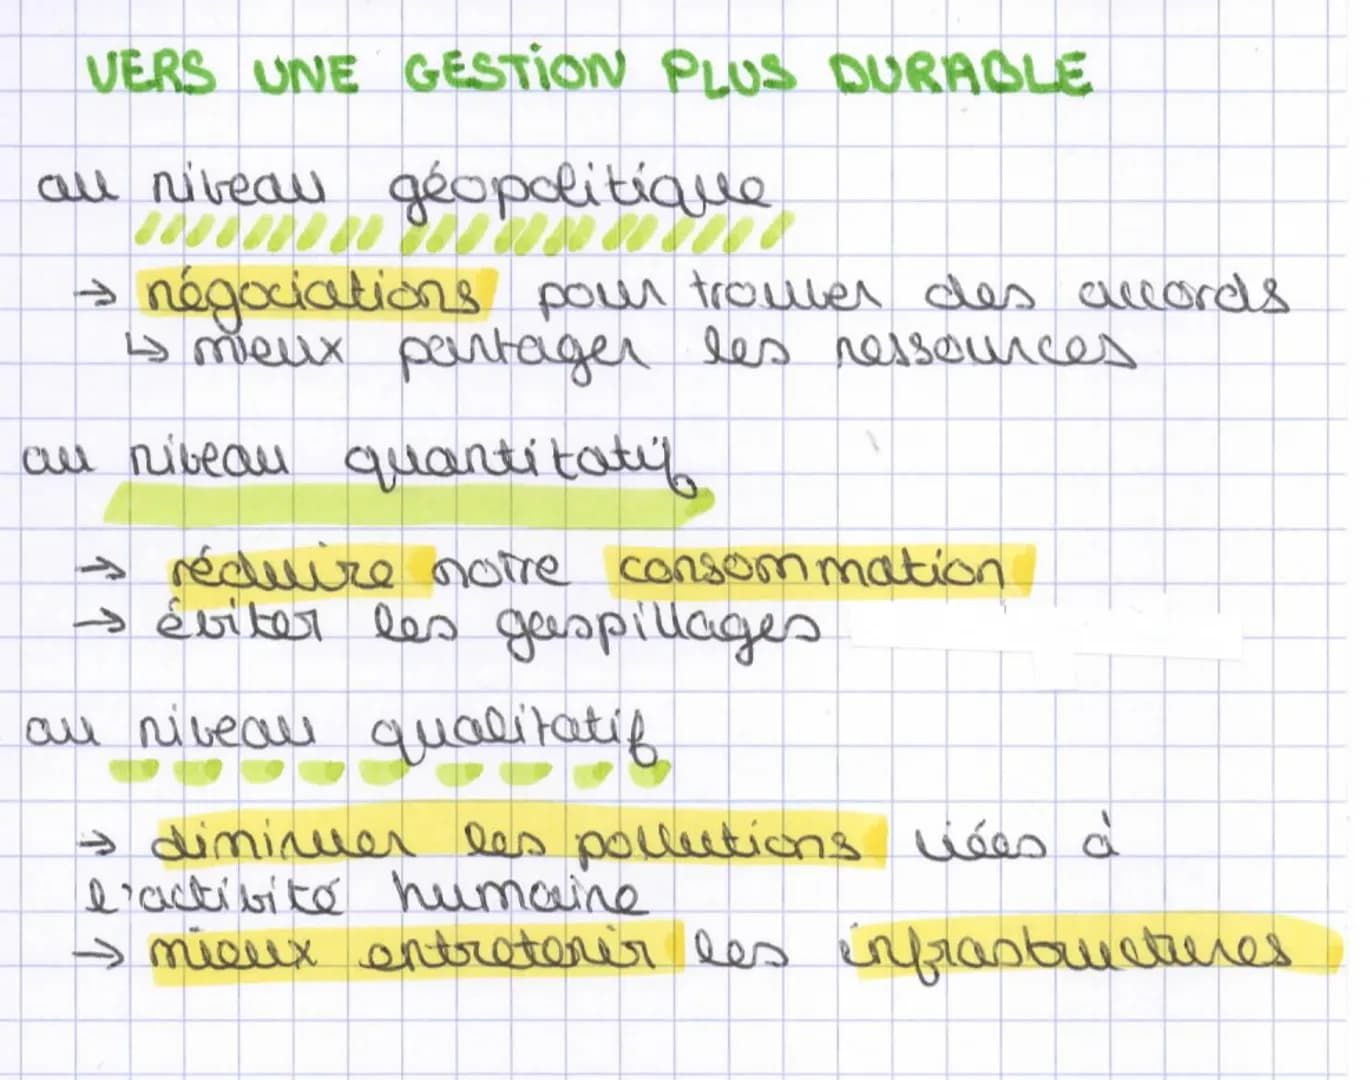 VERS UNE GESTION PLUS DURABLE
au niveau géopolitique
→ négociations pour trouver des accords
↳ mieux partager les ressources
au niveau quantitatif
→ réduire notre consommation
→ éviter les gaspillages
au niveau qualitatif
→ diminuer les pollutions liées à
l'activité humaine
→ mieux entretenir les infrastructures